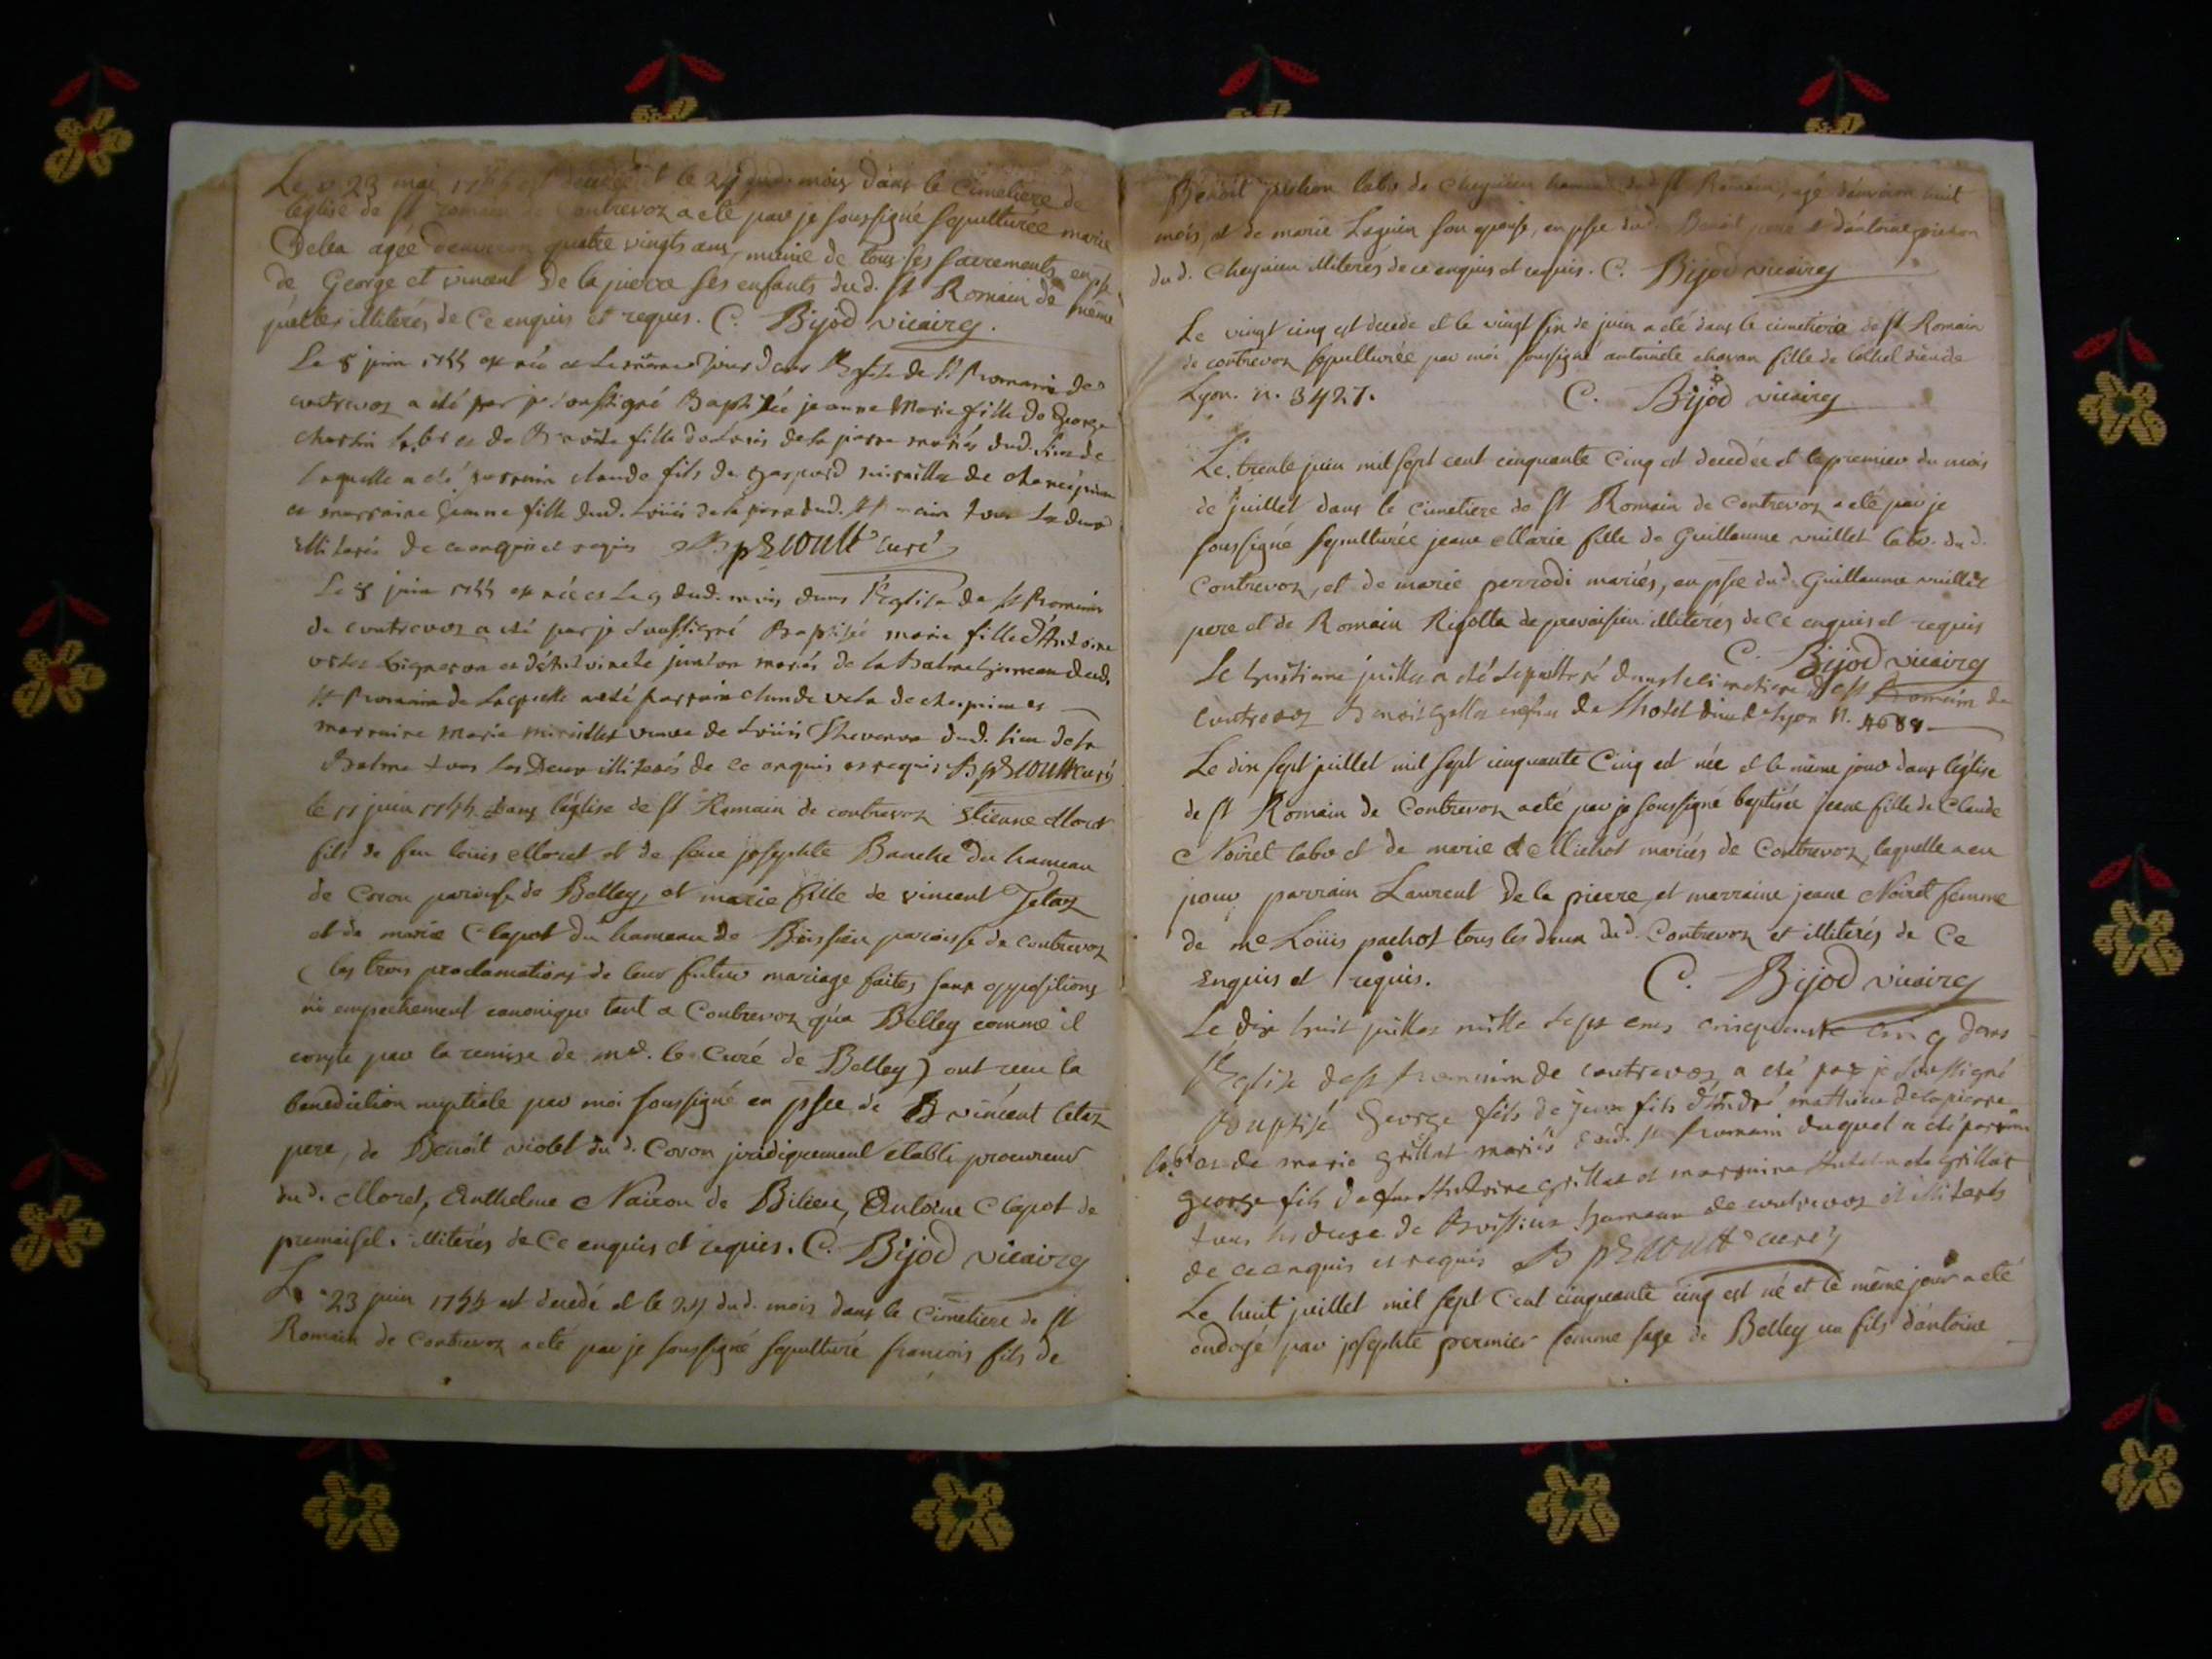 Le 23 mai 1755 est decedé et le 24 dud. mois dans le Cimetiere de
leglise de st romain de Contrevoz a eté par je soussigné sepulturée marie
Delea agée denviron quatre vingts ans, munie de tous ses sacrements, en psce
de George et vincent De la pierre ses enfants dud. st Romain de même
illiterés de Ce enquis et requis. C. Bijod vicaire
Le 8 juin 1755 est née et le même jour dans l'Eglise de st Romain de
contrevoz a eté par je soussigné Baptisée jeanne Marie fille de George
labr et de fille de Louis de la pierre mariés dud. lieu de
laquelle a eté parrain claude fils de Gaspard miraillet de
et marraine jeanne fille dud. Loüis de la pierre dud. st romain tous les deux
illiterés de ce enquis et requis B curé
Le 8 juin 1755 est née et le 9 dud. mois dans l'Eglise de st Romain
de contrevoz a eté par je soussigné Baptisée marie fille d'Antoine
vigneron et d'Antoinete mariés de la Balme hameau dud.
st Romain de laquelle a eté parrain claude de et
marraine Marie miraillet veuve de Loüis dud. lieu de la
Balme tous les Deux illiterés de ce enquis et requis B curé
le 11 juin 1755 Dans l'église de st Romain de contrevoz Etienne Moret
fils de feu loüis Moret et de feüe josephte Banche du hameau
de Coron paroisse de Belley, et marie fille de vincent Tetaz
et de marie Clapot du hameau de Boissieu paroisse de Contrevoz
(les trois proclamations de leur futur mariage faites sans oppositions
ni empechement canonique tant a Contrevoz qu'a Belley comme il
conste par la remise de mr. le Curé de Belley) ont recu la
benediction nuptiale par moi soussigné en psce de vincent tetaz
pere, de Benoît violet du d. Coron juridiquement établi procureur
dud. Moret, Anthelme Nairon de Bilieu, Antoine Clapot de
premeisel. illiterés de Ce enquis et requis. C. Bijod vicaire
Le 23 juin 1755 est decedé et le 24 dud. mois dans le Cimetiere de st
Romain de Contrevoz a eté par je soussigné sepulturé françois fils de
Benoît pichon labr de Cheynieu hameau dud st Romain, agé d'environ huit
mois, et de marie Laguin son epouse, en psce dud. Benoît pere et d'antoine pichon
du d. Cheynieu illiterés de ce enquis et requis. C. Bijod vicaire
Le vingt cinq est decede et le vingt six de juin a eté dans le cimetiere de st Romain
de contrevoz sepulturée par moi soussigné antoinete chavan fille de lothel dieu de
Lyon. n. 3427. C. Bijod vicaire
Le trente juin mil sept cent cinquante Cinq est decedée et le premier du mois
de juillet dans le Cimetiere de st Romain de Contrevoz a eté par je
soussigné sepulturée jeane Marie fille de Guillaume vuillet labr. du d.
Contrevoz, et de marie perrodi mariés, en psce dud. Guillaume vuillet
pere et de Romain Rigollet de preveisieu illiterés de Ce enquis et requis
C. Bijod vicaire
Le huitieme juillet a eté sepulturé dans le cimetiere de st Romain de
Contrevoz Benoit enfant de l'hotel dieu de Lyon n.
Le dix sept juillet mil sept cinquante Cinq est née et le même jour dans l'église
de st Romain de Contrevoz a eté par je soussigné baptisée jeane fille de Claude
Noiret labr et de marie Michot mariés de Contrevoz, laquelle a eu
pour parrain Laurent De la pierre, et marraine jeane Noiret femme
de me Loüis pachot tous les deux du d. Contrevoz et illiterés de Ce
Enquis et requis. C. Bijod vicaire
Le dix huit juillet mille sept cens cinquante cinq dans
l'Eglise de st romain de contrevoz a eté par je soussigné
Baptisé George fils de jean fils d'André mathieu delapierre
labr et de marie grillat mariés dud. st romain duquel a eté parrain
george fils de feu Antoine grillat et marraine grillat
tous les deux de Boissieu hameau de contrevoz et illiterés
de ce enquis et requis B curé
Le huit juillet mil sept Cent cinquante cinq est né et le même jour a eté
ondoyé par josephte permier femme sage de Belley un fils d'antoine